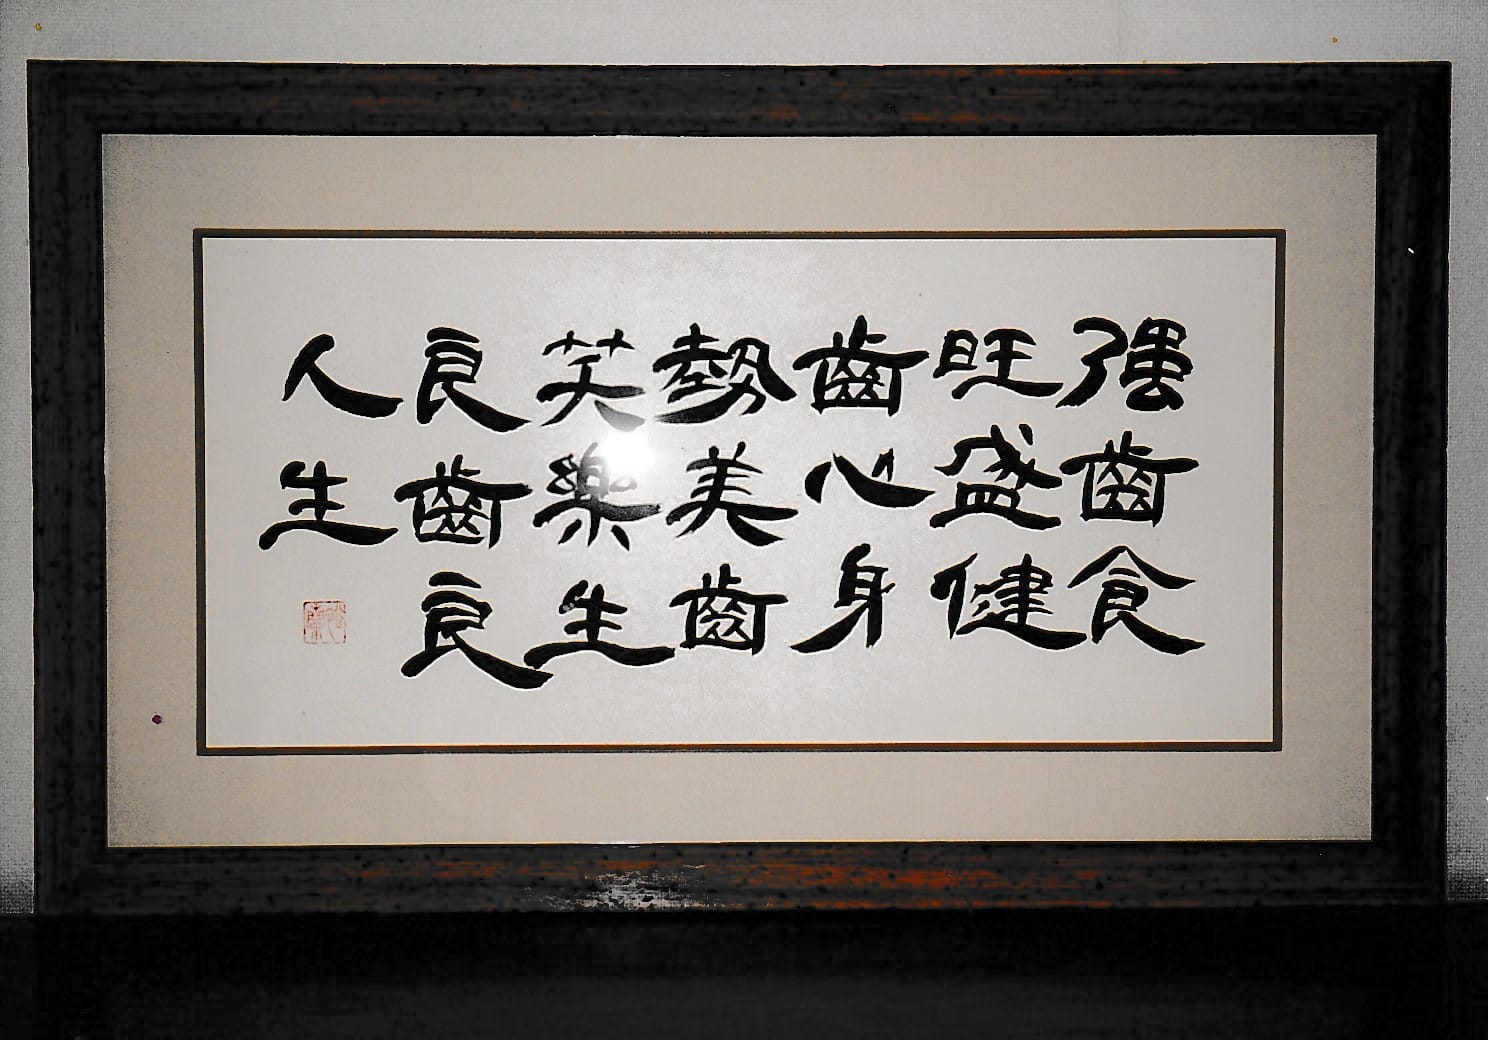 强齒食
旺盛健
齒心身
勢美齒
笑樂生
良齒良
人生